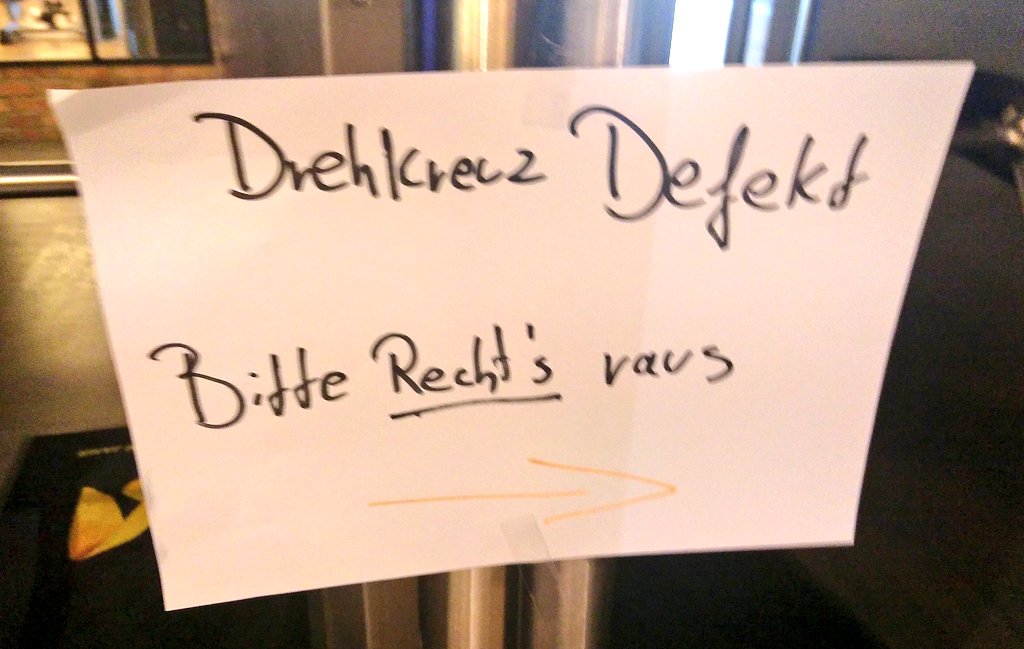 Drehkreuz Defekt
Bitte Recht's raus